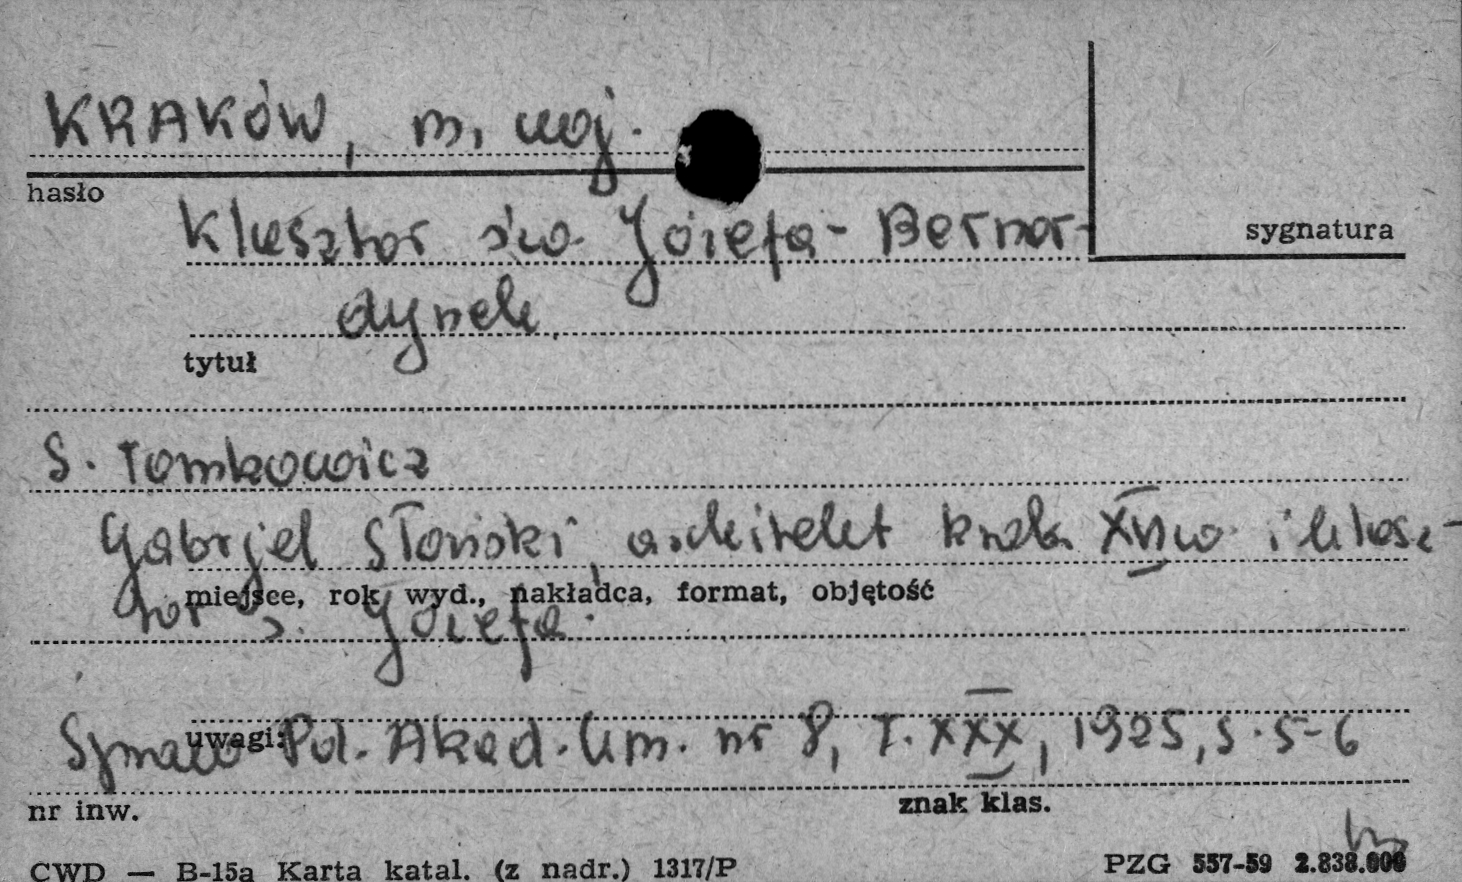 KRAKÓW, m. woj.
hasło
Klasztor św. Józefa - Bernar-
sygnatura
dynek
tytuł
S. Tomkowicz
Gabrjel Słoński, architekt krak. XVI w. i klasz-
miejsce, rok wyd., nakładca, format, objętość
tor s. Józefa.
Sprawo. Pol. Akad. Um. nr 8, T. XXX, 1925, s. 5-6
uwagi:
nr inw.
znak klas.
CWD — B-15a Karta katal. (z nadr.) 1317/P
PZG 557-59 2.838.000